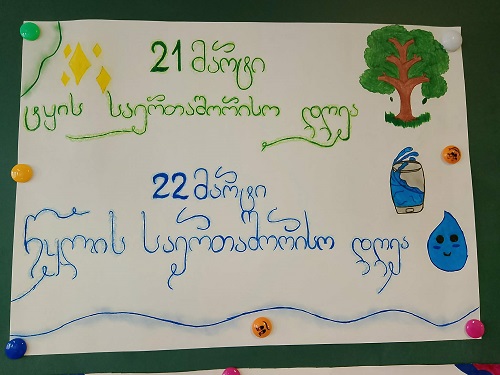 21 მარტი
ტყის საერთაშორისო დღეა
22 მარტი
წყლის საერთაშორისო დღეა